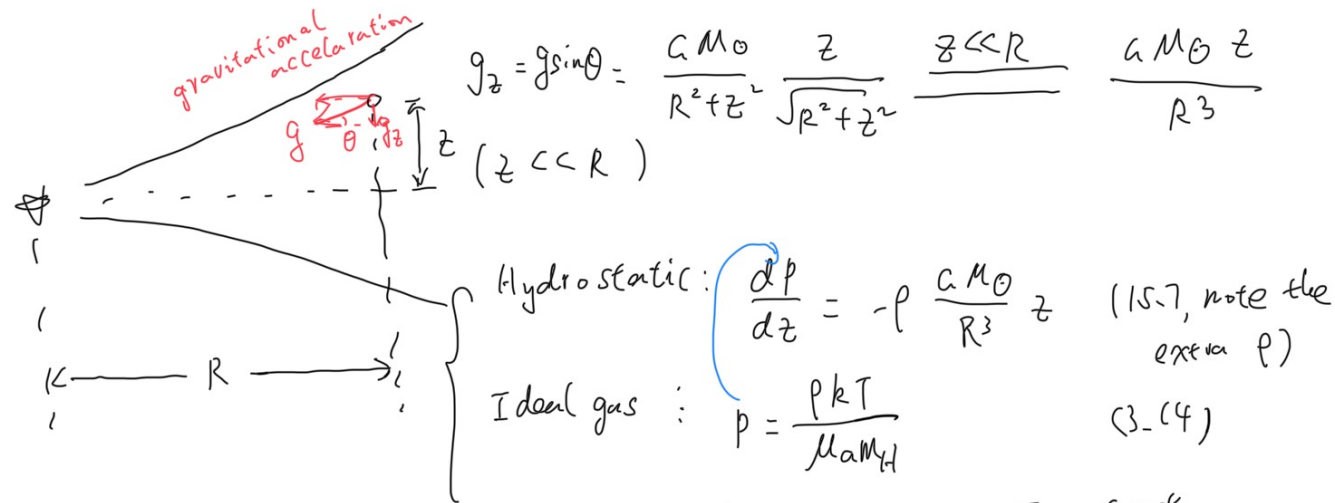 gravitational
accelaration
g_z = g sinθ = GM⊙/(R²+z²) z/√(R²+z²) z<<R GM⊙z/R³
g θ g_z z
(z << R)
Hydrostatic: dp/dz = -ρ GM⊙/R³ z (15.7, note the
extra ρ)
R
Ideal gas : p = ρkT/(μ_a m_H) (3.14)